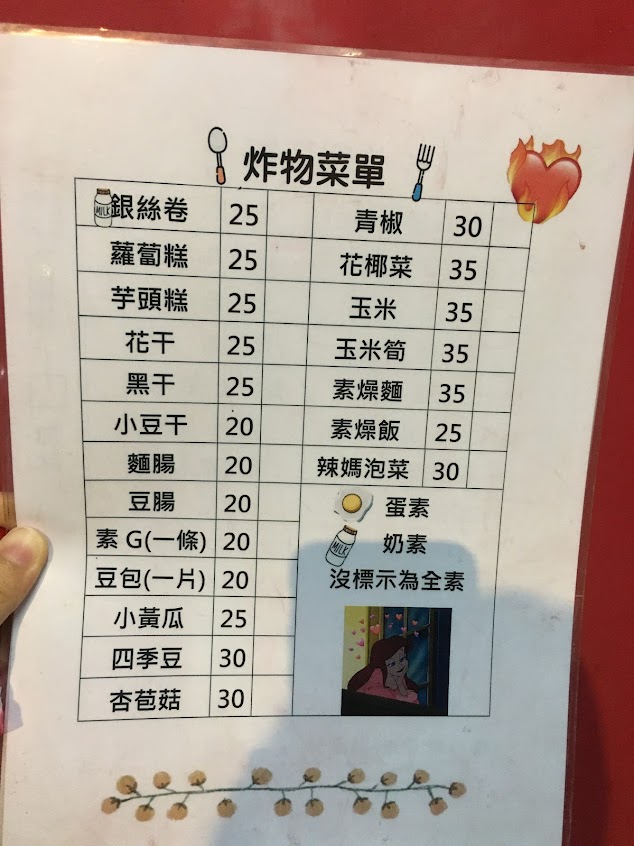 炸物菜單
MILK 銀絲卷 25
蘿蔔糕 25
芋頭糕 25
花干 25
黑干 25
小豆干 20
麵腸 20
豆腸 20
素G(一條) 20
豆包(一片) 20
小黃瓜 25
四季豆 30
杏苞菇 30
青椒 30
花椰菜 35
玉米 35
玉米筍 35
素燥麵 35
素燥飯 25
辣媽泡菜 30
蛋素
MILK 奶素
沒標示為全素